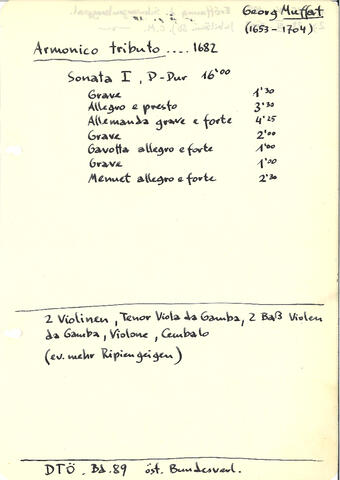 Georg Muffat
(1653-1704)
Armonico tributo .... 1682
Sonata I, D-Dur 16'00
Grave 1'30
Allegro e presto 3'30
Allemanda grave e forte 4'25
Grave 2'00
Gavotta allegro e forte 1'00
Grave 1'00
Menuet allegro e forte 2'30
2 Violinen, Tenor Viola da Gamba, 2 Baß Violen
da Gamba, Violone, Cembalo
(ev. mehr Ripiengeigen)
DTÖ. Bd. 89 öst. Bundesverl.